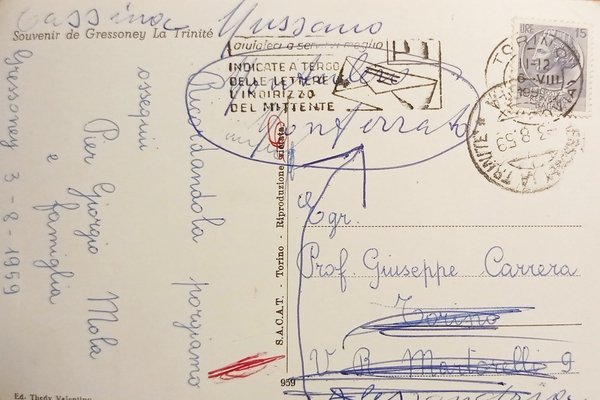 Cassina Mussano
Souvenir de Gressoney La Trinité
Gressoney 3-8-1959
Ricordandola porgiamo
ossequi
Pier Giorgio Mola
e
famiglia
aiutateci a servirvi meglio
INDICATE A TERGO
DELLE LETTERE
L'INDIRIZZO
DEL MITTENTE
Monferrato
LIRE 15
TORINO
11-12
6-VIII
1959
3.8.59
LA TRINITE
Egr.
Prof. Giuseppe Carrera
Torino
V. R. Martorelli 9
Alessandria
S.A.C.A.T. - Torino - Riproduzione vietata
959
Ed. Thedy Valentino